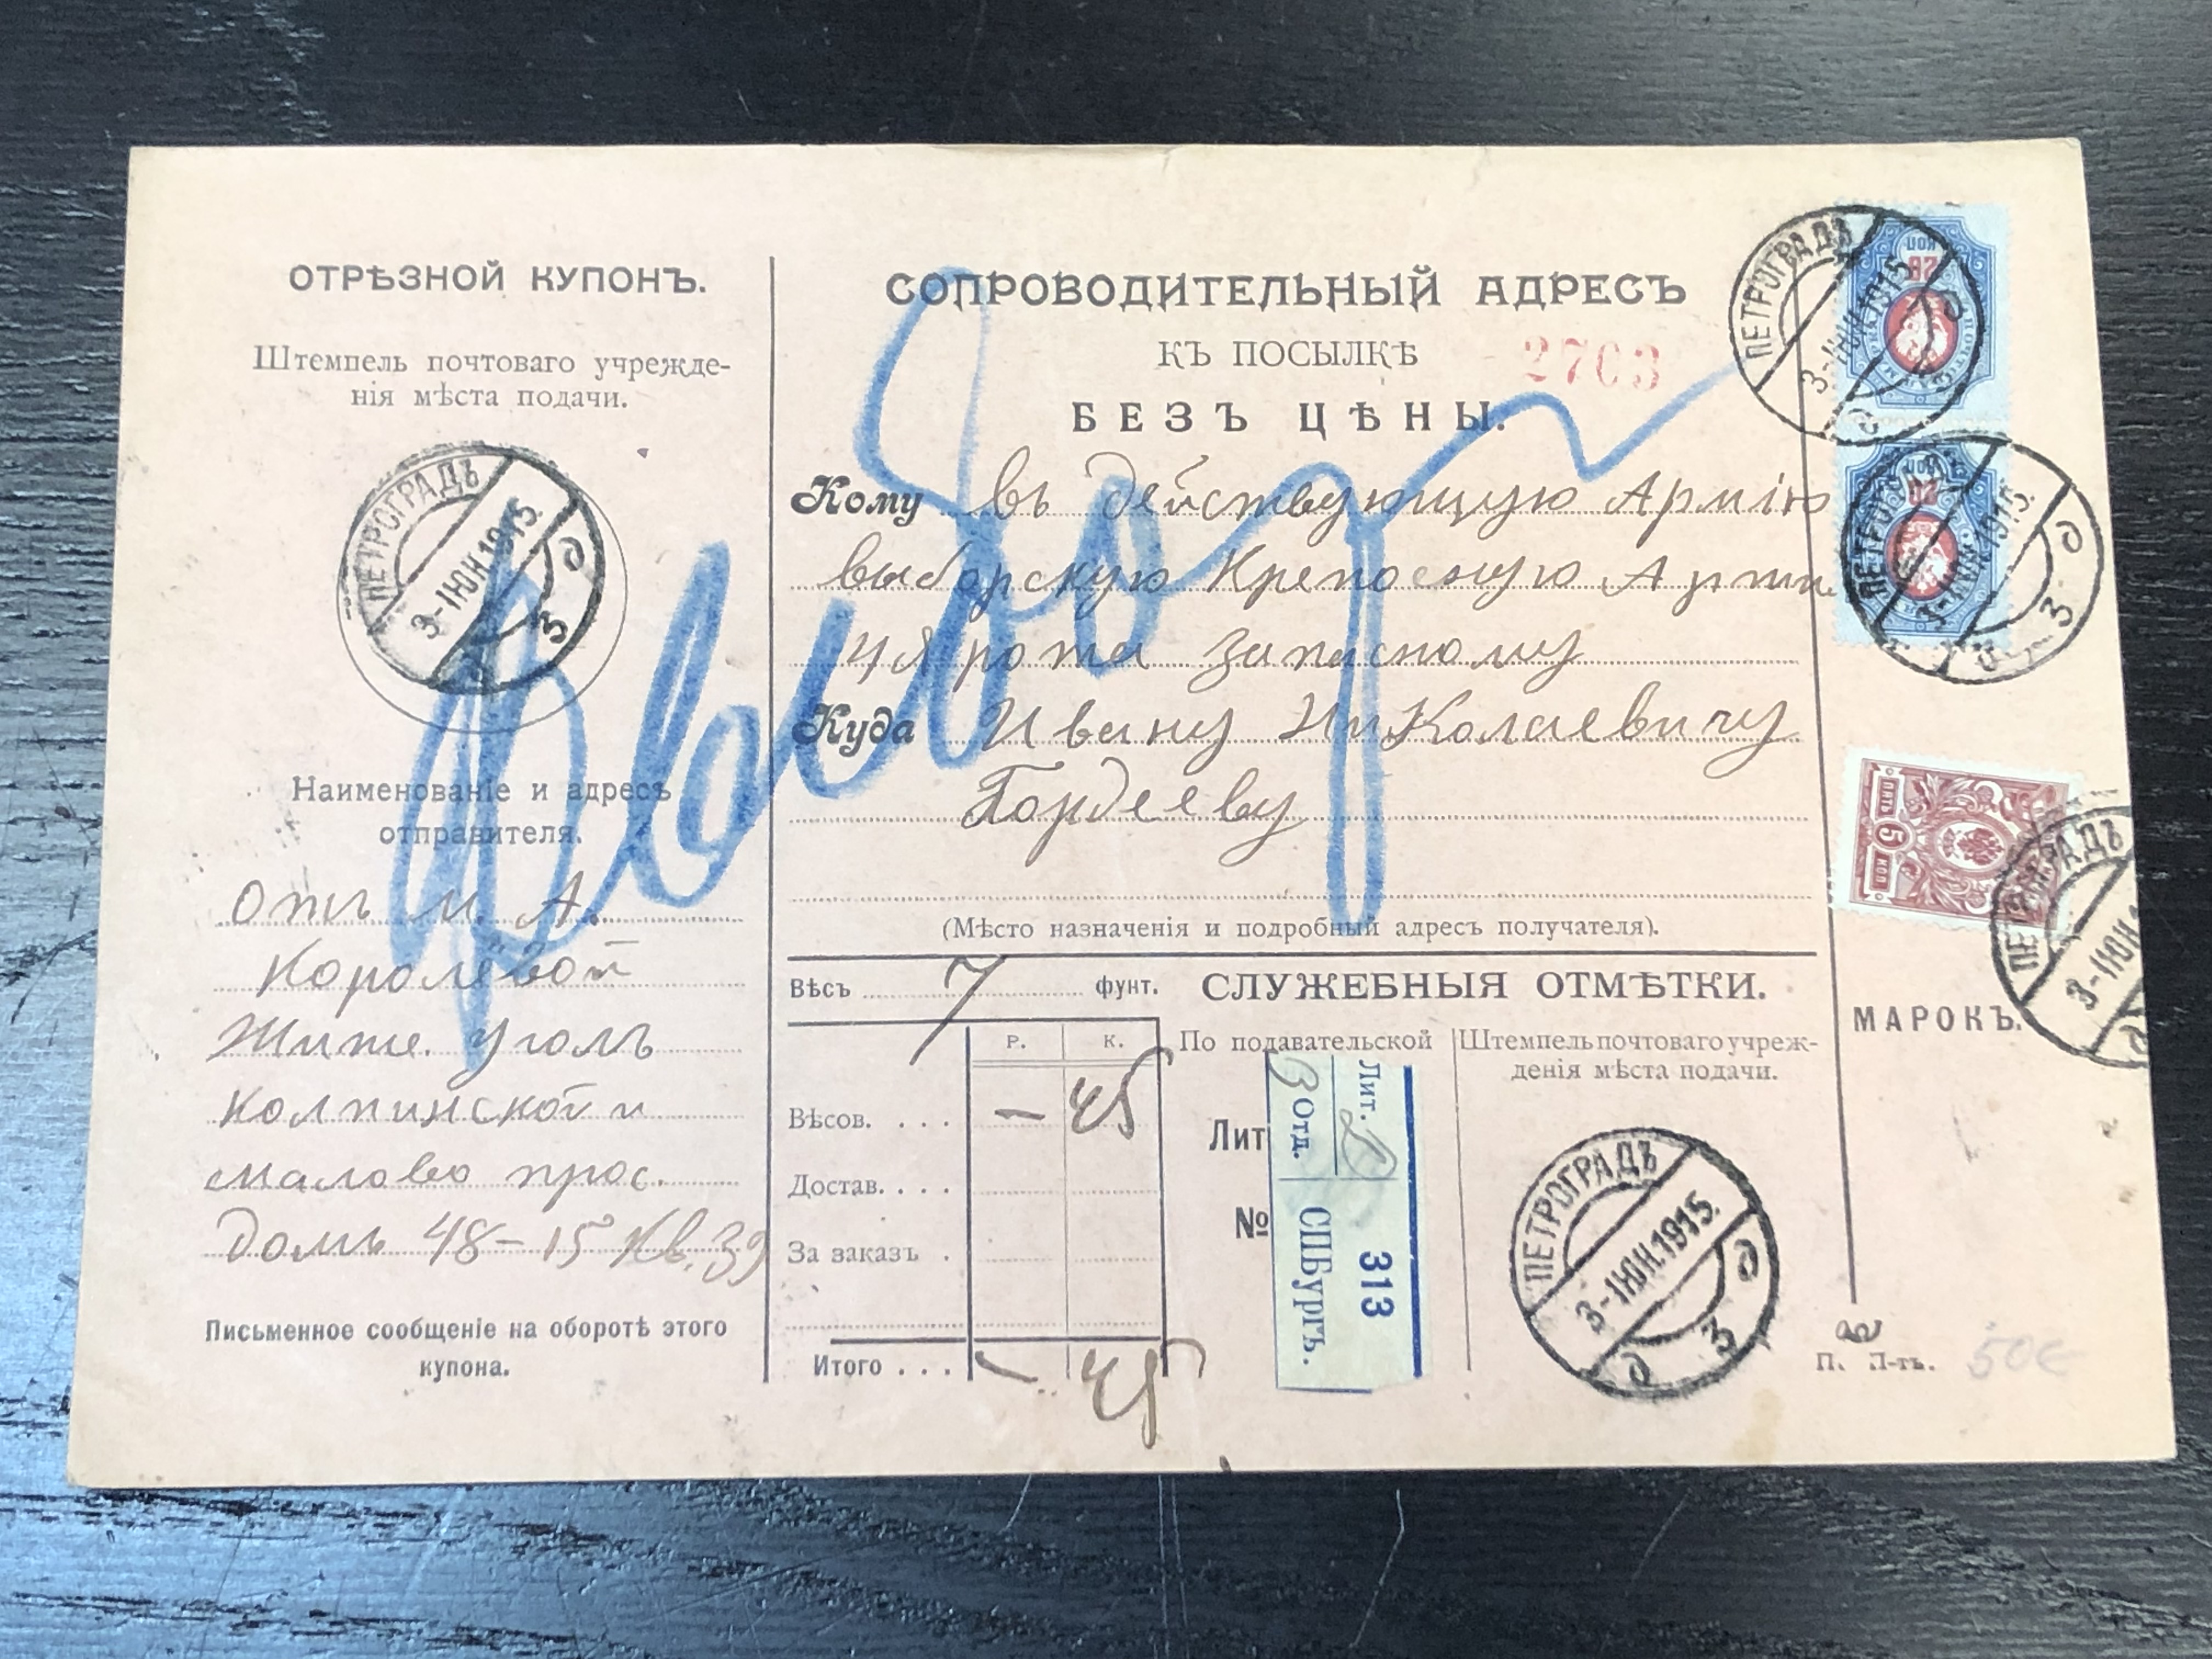 ОТРѢЗНОЙ КУПОНЪ.
Штемпель почтоваго учрежде-
нія мѣста подачи.
ПЕТРОГРАДЪ
3-ІЮН.1915.
Наименованіе и адресъ
отправителя.
отъ М. А.
Королёвой
Жите. уголъ
Колпинской и
малово прос.
домъ 48-15 Кв. 39
Письменное сообщеніе на оборотѣ этого
купона.
СОПРОВОДИТЕЛЬНЫЙ АДРЕСЪ
КЪ ПОСЫЛКѢ
2703
БЕЗЪ ЦѢНЫ.
Выборг
Кому въ действующую Армію
выборскую Крепосную Арти.
4я рота запасному
Куда Ивану Николаевичу
Гордееву
(Мѣсто назначенія и подробный адресъ получателя).
Вѣсъ 7 фунт.
Р. К.
Вѣсов. . . . — 45
Достав. . . .
За заказъ .
Итого . . . — 45
СЛУЖЕБНЫЯ ОТМѢТКИ.
По подавательской
Лит
№
Лит. Д
3 Отд.
СПБургъ.
313
Штемпель почтоваго учреж-
денія мѣста подачи.
ПЕТРОГРАДЪ
3-ІЮН.1915.
ПЕТРОГРАДЪ
3-ІЮН.1915.
ПЕТРОГРАДЪ
3-ІЮН.1915.
ПЯТЬ 5 КОП
ПЕТРОГРАДЪ
3-ІЮН.1
МАРОКЪ.
П. П-ть.
50€